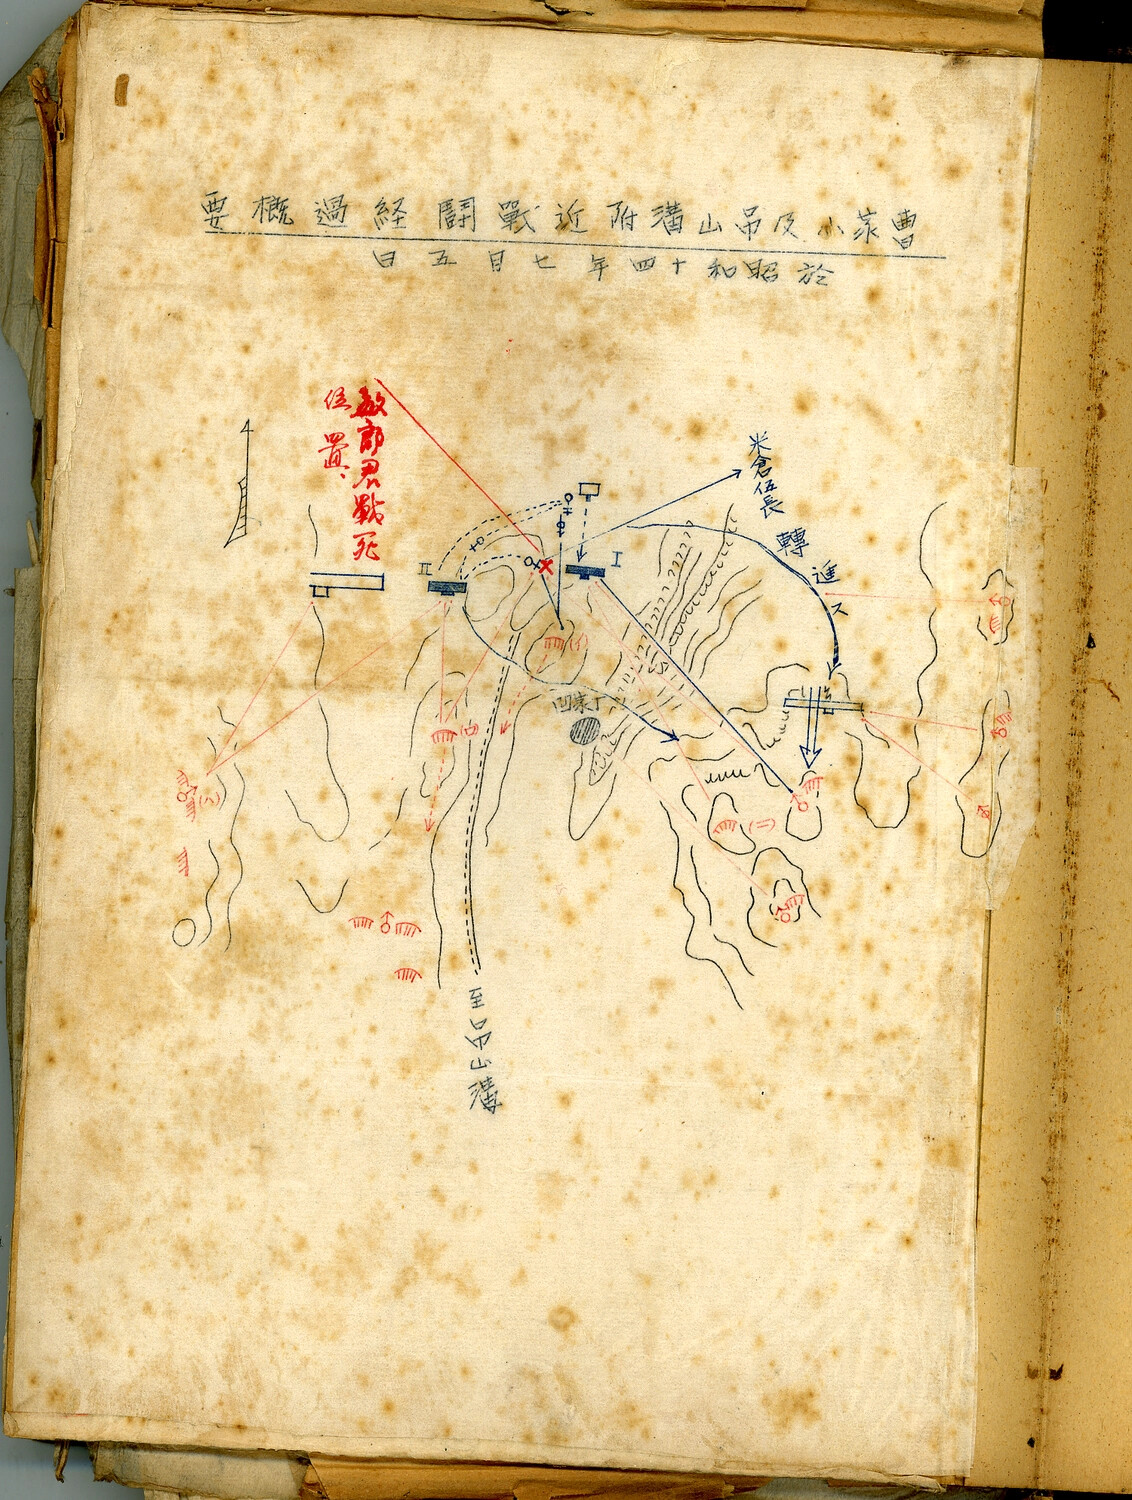 曹家小及吊山溝附近戰鬪経過概要
於昭和十四年七月五日
米倉伍長
轉進ス
敏郎君戰死
位置、
I
II
(イ)
(ロ)
(ハ)
(ニ)
丁家凹
至吊山溝